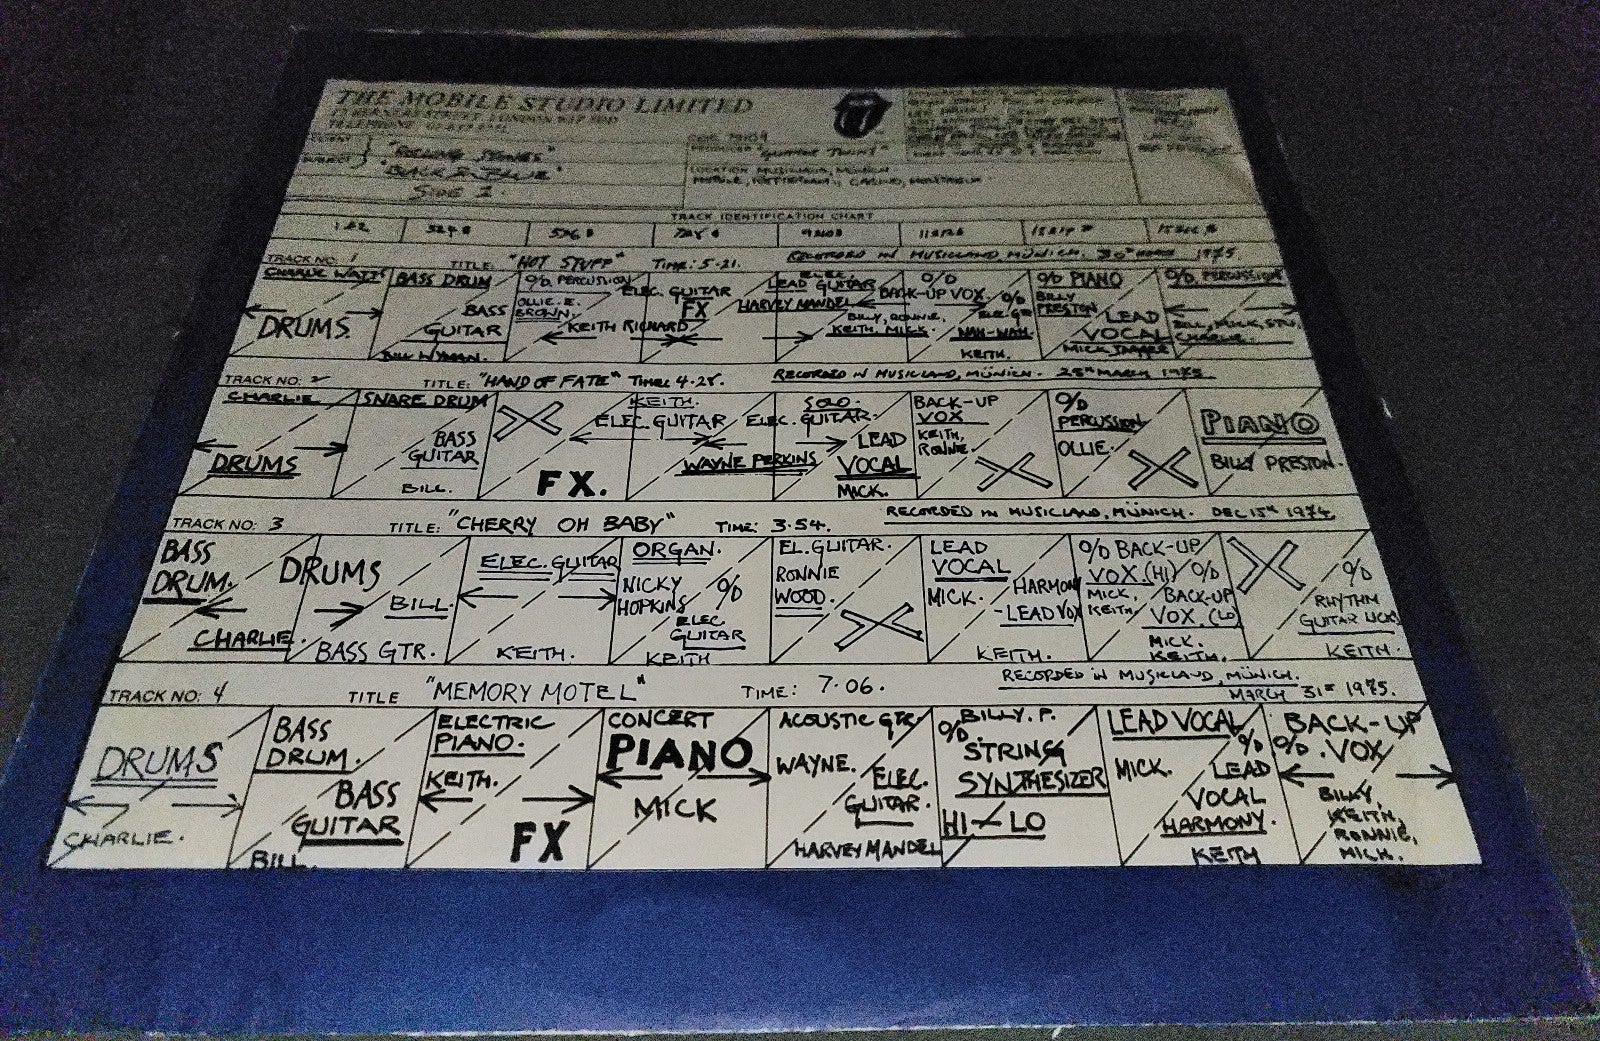 THE MOBILE STUDIO LIMITED
LONDON
TELEPHONE
"ROLLING STONES"
"BLACK & BLUE"
SIDE 1
LOCATION MUSICLAND, MUNICH
MOBILE, ROTTERDAM, CASINO, MONTREUX
TRACK IDENTIFICATION CHART
1 & 2
TRACK NO. 1 TITLE: "HOT STUFF" TIME: 5·21. RECORDED IN MUSICLAND, MUNICH. 30TH MARCH 1975.
CHARLIE WATTS
DRUMS.
BASS DRUM
BASS
GUITAR
BILL WYMAN.
O/D. PERCUSSION
OLLIE. E.
BROWN.
KEITH RICHARD
ELEC. GUITAR
FX
ELEC.
LEAD GUITAR
HARVEY MANDEL
O/D
BACK-UP VOX.
BILLY, RONNIE,
KEITH, MICK.
O/D
ELEC. GTR
WAH-WAH.
KEITH.
O/D PIANO
BILLY
PRESTON
LEAD
VOCAL
MICK JAGGER
O/D. PERCUSSION
BILL, MICK, STU,
CHARLIE.
TRACK NO: 2 TITLE: "HAND OF FATE" TIME: 4·25. RECORDED IN MUSICLAND, MÜNICH. 25TH MARCH 1975.
CHARLIE
DRUMS
SNARE DRUM
BASS
GUITAR
BILL.
FX.
KEITH.
ELEC. GUITAR
WAYNE PERKINS
SOLO.
ELEC. GUITAR.
LEAD
VOCAL
MICK.
BACK-UP
VOX
KEITH,
RONNIE.
O/D
PERCUSSION
OLLIE.
PIANO
BILLY PRESTON.
TRACK NO: 3 TITLE: "CHERRY OH BABY" TIME: 3·54. RECORDED IN MUSICLAND, MÜNICH. DEC 15TH 1974
BASS
DRUM.
DRUMS
CHARLIE.
BILL.
BASS GTR.
ELEC. GUITAR
KEITH.
ORGAN.
NICKY
HOPKINS
O/D
ELEC
GUITAR
KEITH
EL. GUITAR.
RONNIE
WOOD.
LEAD
VOCAL
MICK.
HARMONY
-LEAD VOX
KEITH.
O/D BACK-UP
VOX. (HI)
MICK,
KEITH
O/D
BACK-UP
VOX (LO)
MICK.
KEITH.
O/D
RHYTHM
GUITAR LICKS
KEITH.
TRACK NO: 4 TITLE "MEMORY MOTEL" TIME: 7·06. RECORDED IN MUSICLAND, MÜNICH.
MARCH 31ST 1975.
DRUMS
CHARLIE.
BASS
DRUM.
BASS
GUITAR
BILL.
ELECTRIC
PIANO.
KEITH.
FX
CONCERT
PIANO
MICK
ACOUSTIC GTR.
WAYNE.
ELEC.
GUITAR.
HARVEY MANDEL
BILLY. P.
O/D.
STRING
SYNTHESIZER
HI - LO
LEAD VOCAL
MICK.
O/D
LEAD
VOCAL
HARMONY.
KEITH
BACK-UP
O/D. VOX
BILLY,
KEITH,
RONNIE,
MICK.